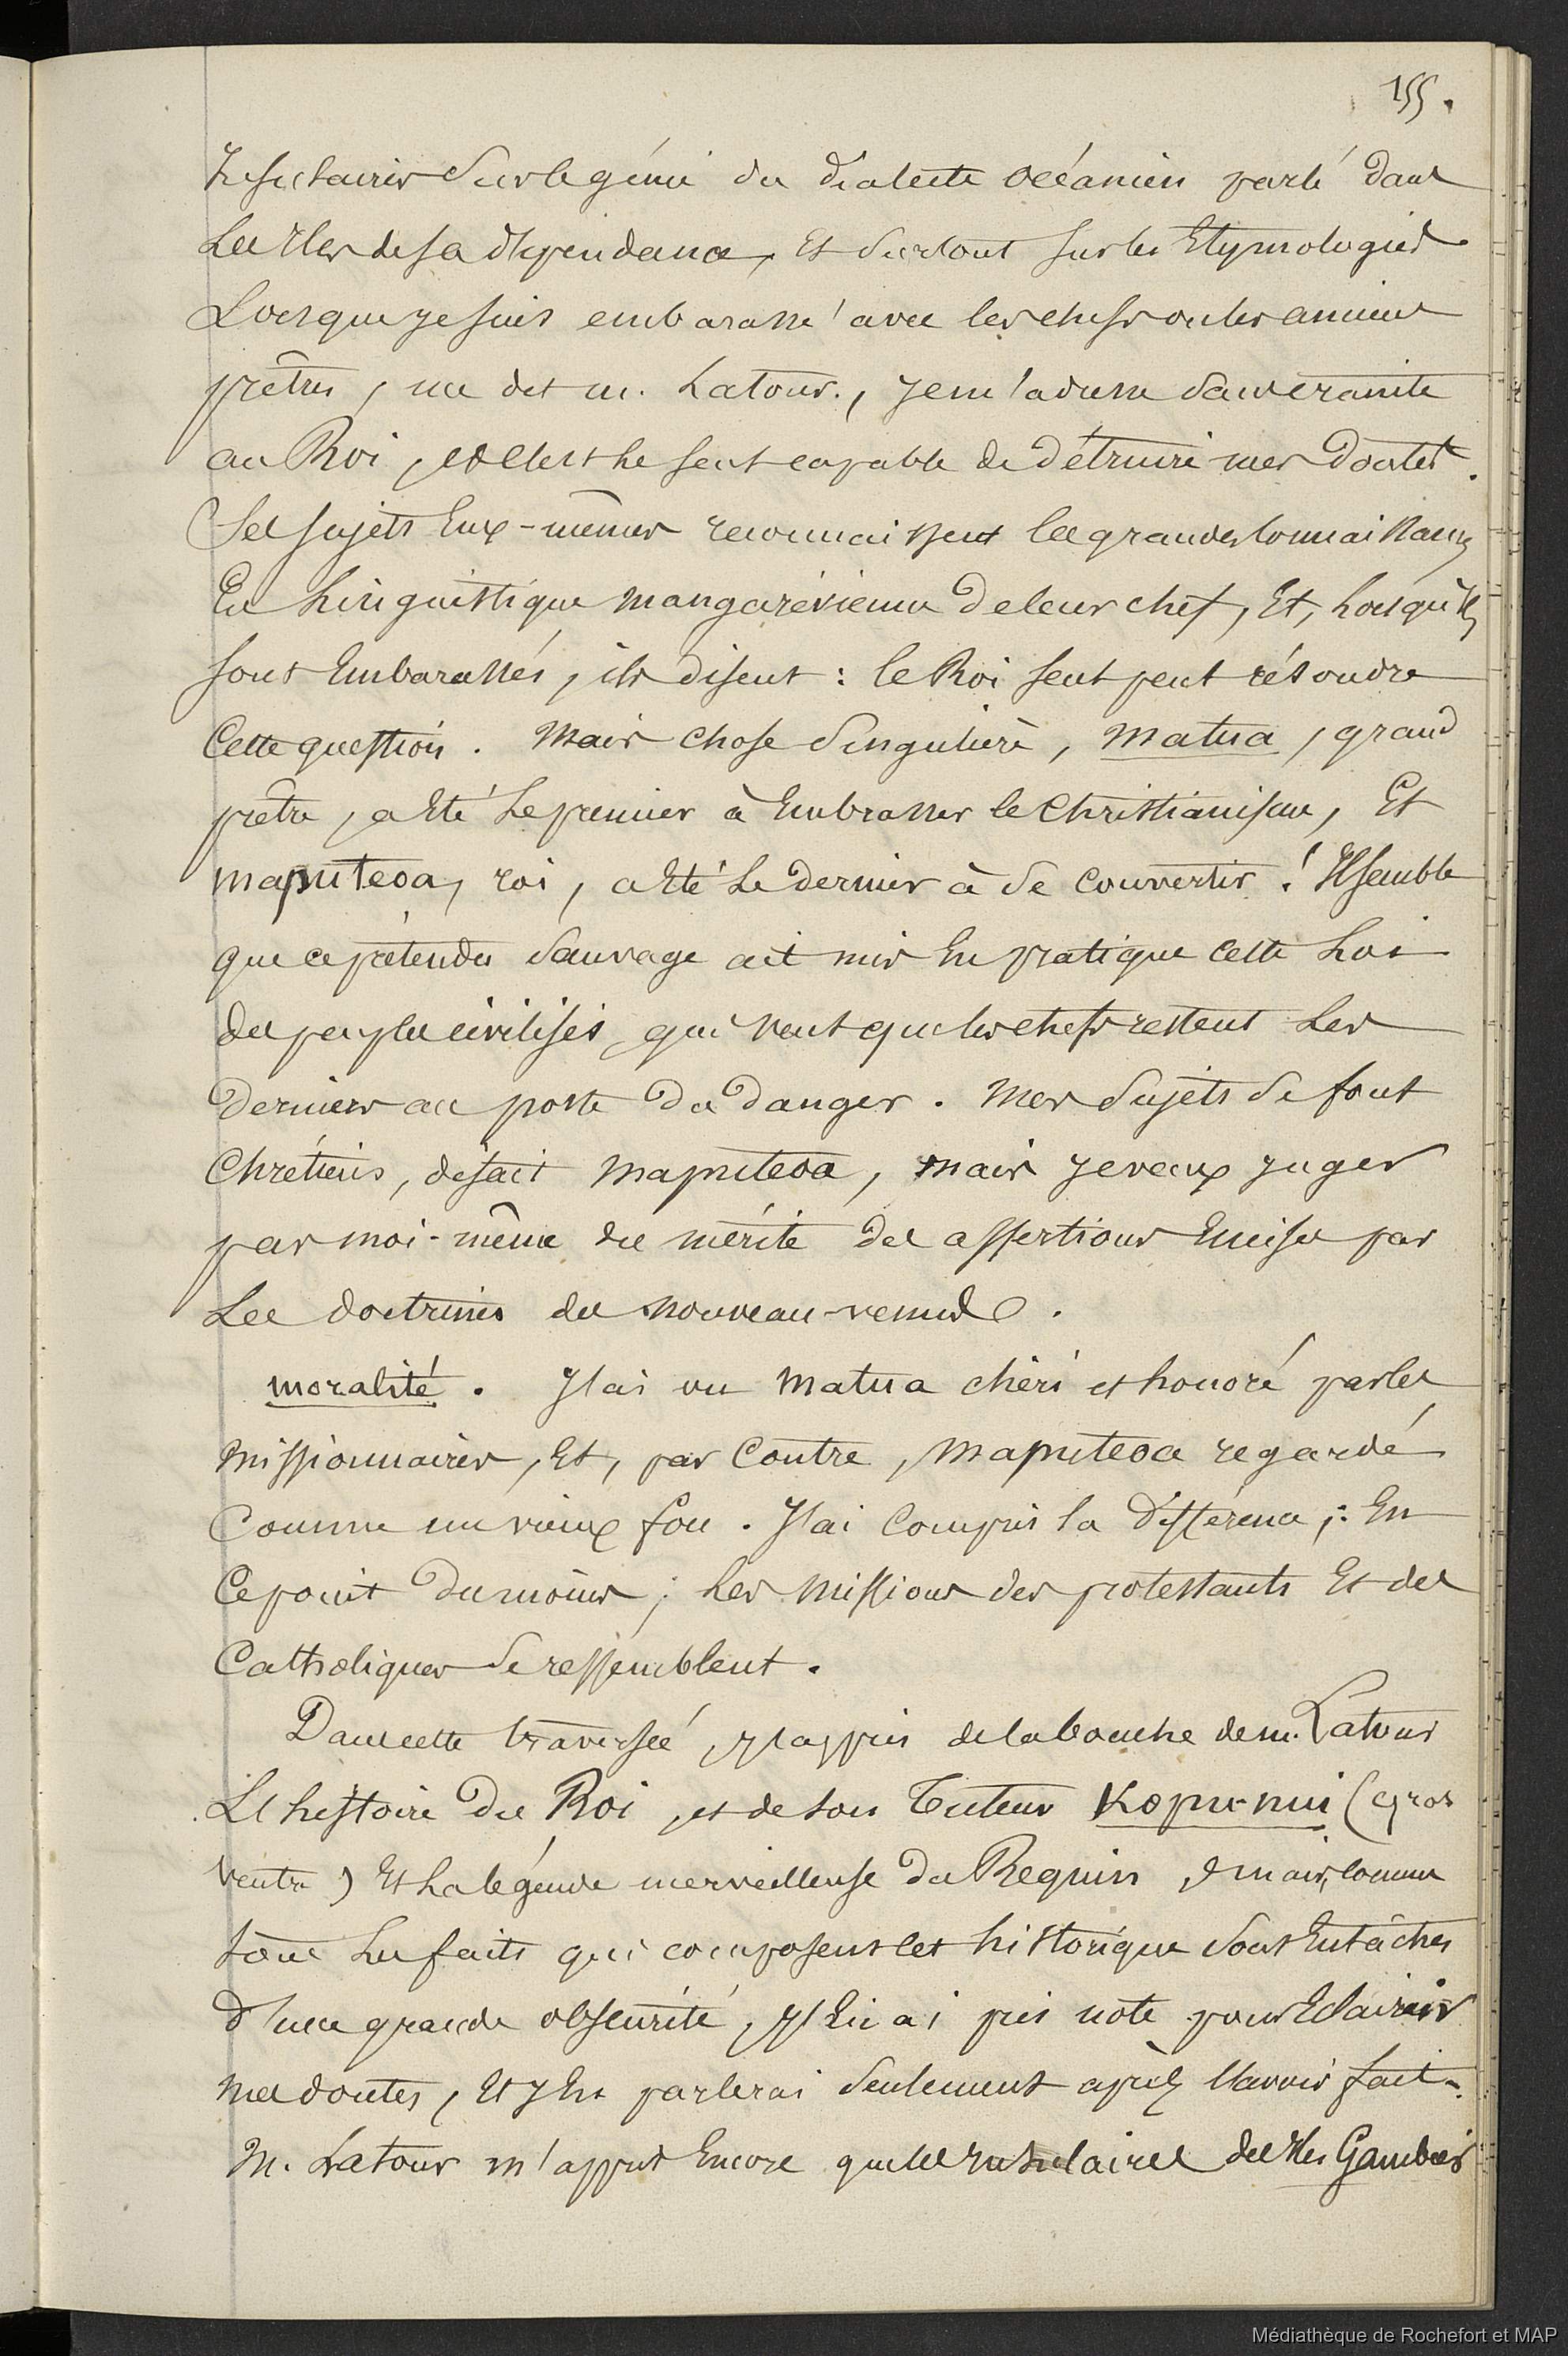 155.
Insulaires sur le génie du dialecte océanien parlé dans
Les Iles de sa dépendance, Et surtout sur les Etymologies.
Lorsque je suis embarassé avec les chefs ou les anciens
prêtres, me dit m. Latour., je m'adresse
au Roi, et c'est le seul capable de détruire mes Doutes.
Ses sujets Eux-mêmes reconnaissent les grandes connaissances
En Linguistique mangarévienne de leur chef, Et, Lorsqu'ils
sont Embarassés, ils disent : le Roi seul peut résoudre
Cette question. Mais chose singulière, Matua, grand
prêtre, a Eté Le premier à Embrasser le Christianisme, Et
maputeoa, roi, a Eté Le dernier à se convertir ! Il semble
que ce prétendu sauvage ait mis En pratique cette Loi
des peuples civilisés, qui veut que les chefs restent Les
Derniers au poste du Danger. Mes sujets se font
Chrétiens, disait Maputeoa, mais je veux juger
par moi-même du mérite des assertions Emises par
Les doctrines des nouveau-venus.
moralité. J'ai vu Matua chéri et honoré par les
missionnaires, Et, par Contre, Maputeoa regardé
Comme un vieux fou. J'ai Compris la différence ; : En
Ce point Du moins ; Les Missions des protestants Et des
Catholiques se ressemblent.
Dans cette traversée, j'appris de la bouche de m. Latour
L'histoire du Roi, et de son Tuteur Kopu-nui (gros
ventre) Et La légende merveilleuse du Requin, mais, comme
tous Les faits qui composent cet historique sont Entâchés
d'une grande obscurité, j'En ai pris note pour Eclaircir
mes doutes, Et j'En parlerai seulement après l'avoir fait.
M. Latour m'apprit Encore que les Insulaires des Iles Gambier
Médiathèque de Rochefort et MAP